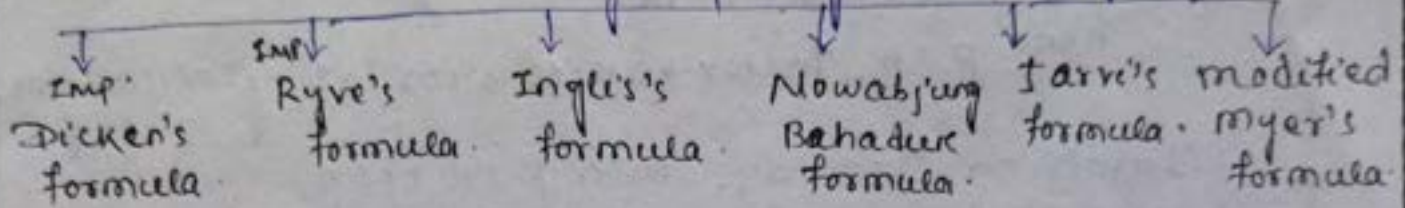 Imp.
Dicken's
formula.
Imp
Ryve's
formula.
Inglis's
formula.
Nowabjung
Bahadur
formula.
Jarvi's
formula.
modified
myer's
formula